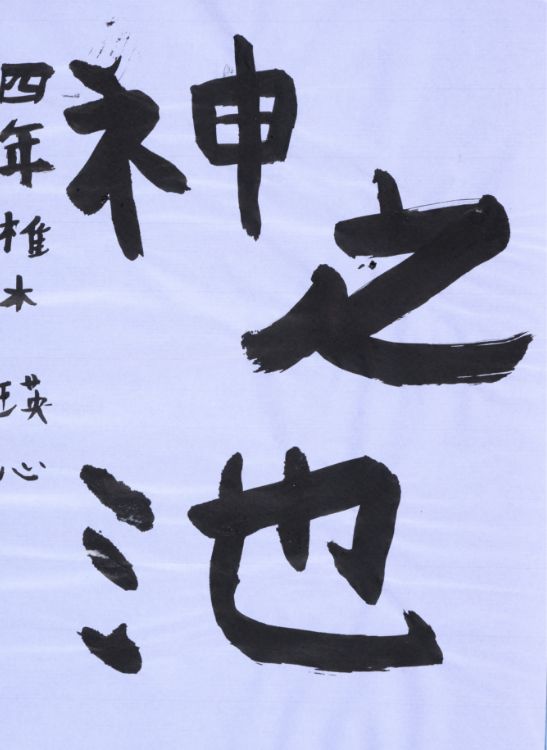 神之池
四年 椎木 瑛心